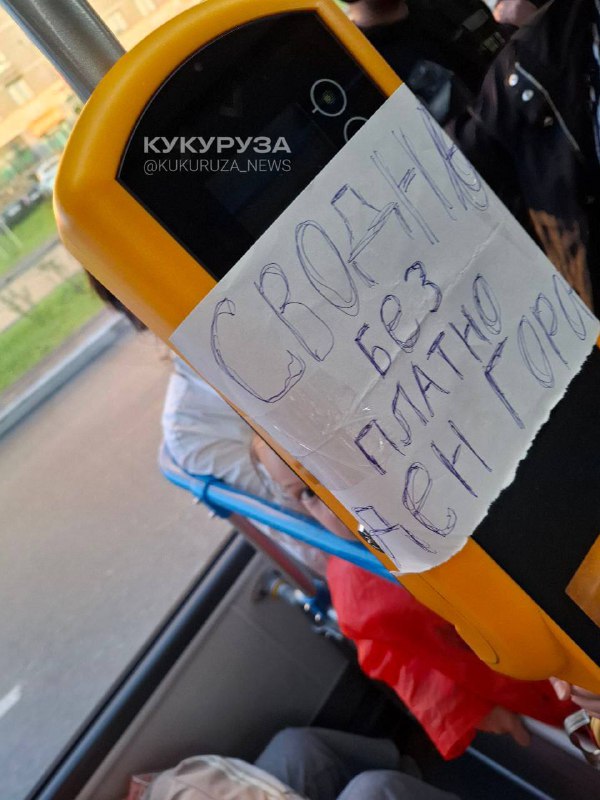 КУКУРУЗА
@KUKURUZA_NEWS
СВОДНА
БЕЗ
ПЛАТНО
ДЕН ГОРО